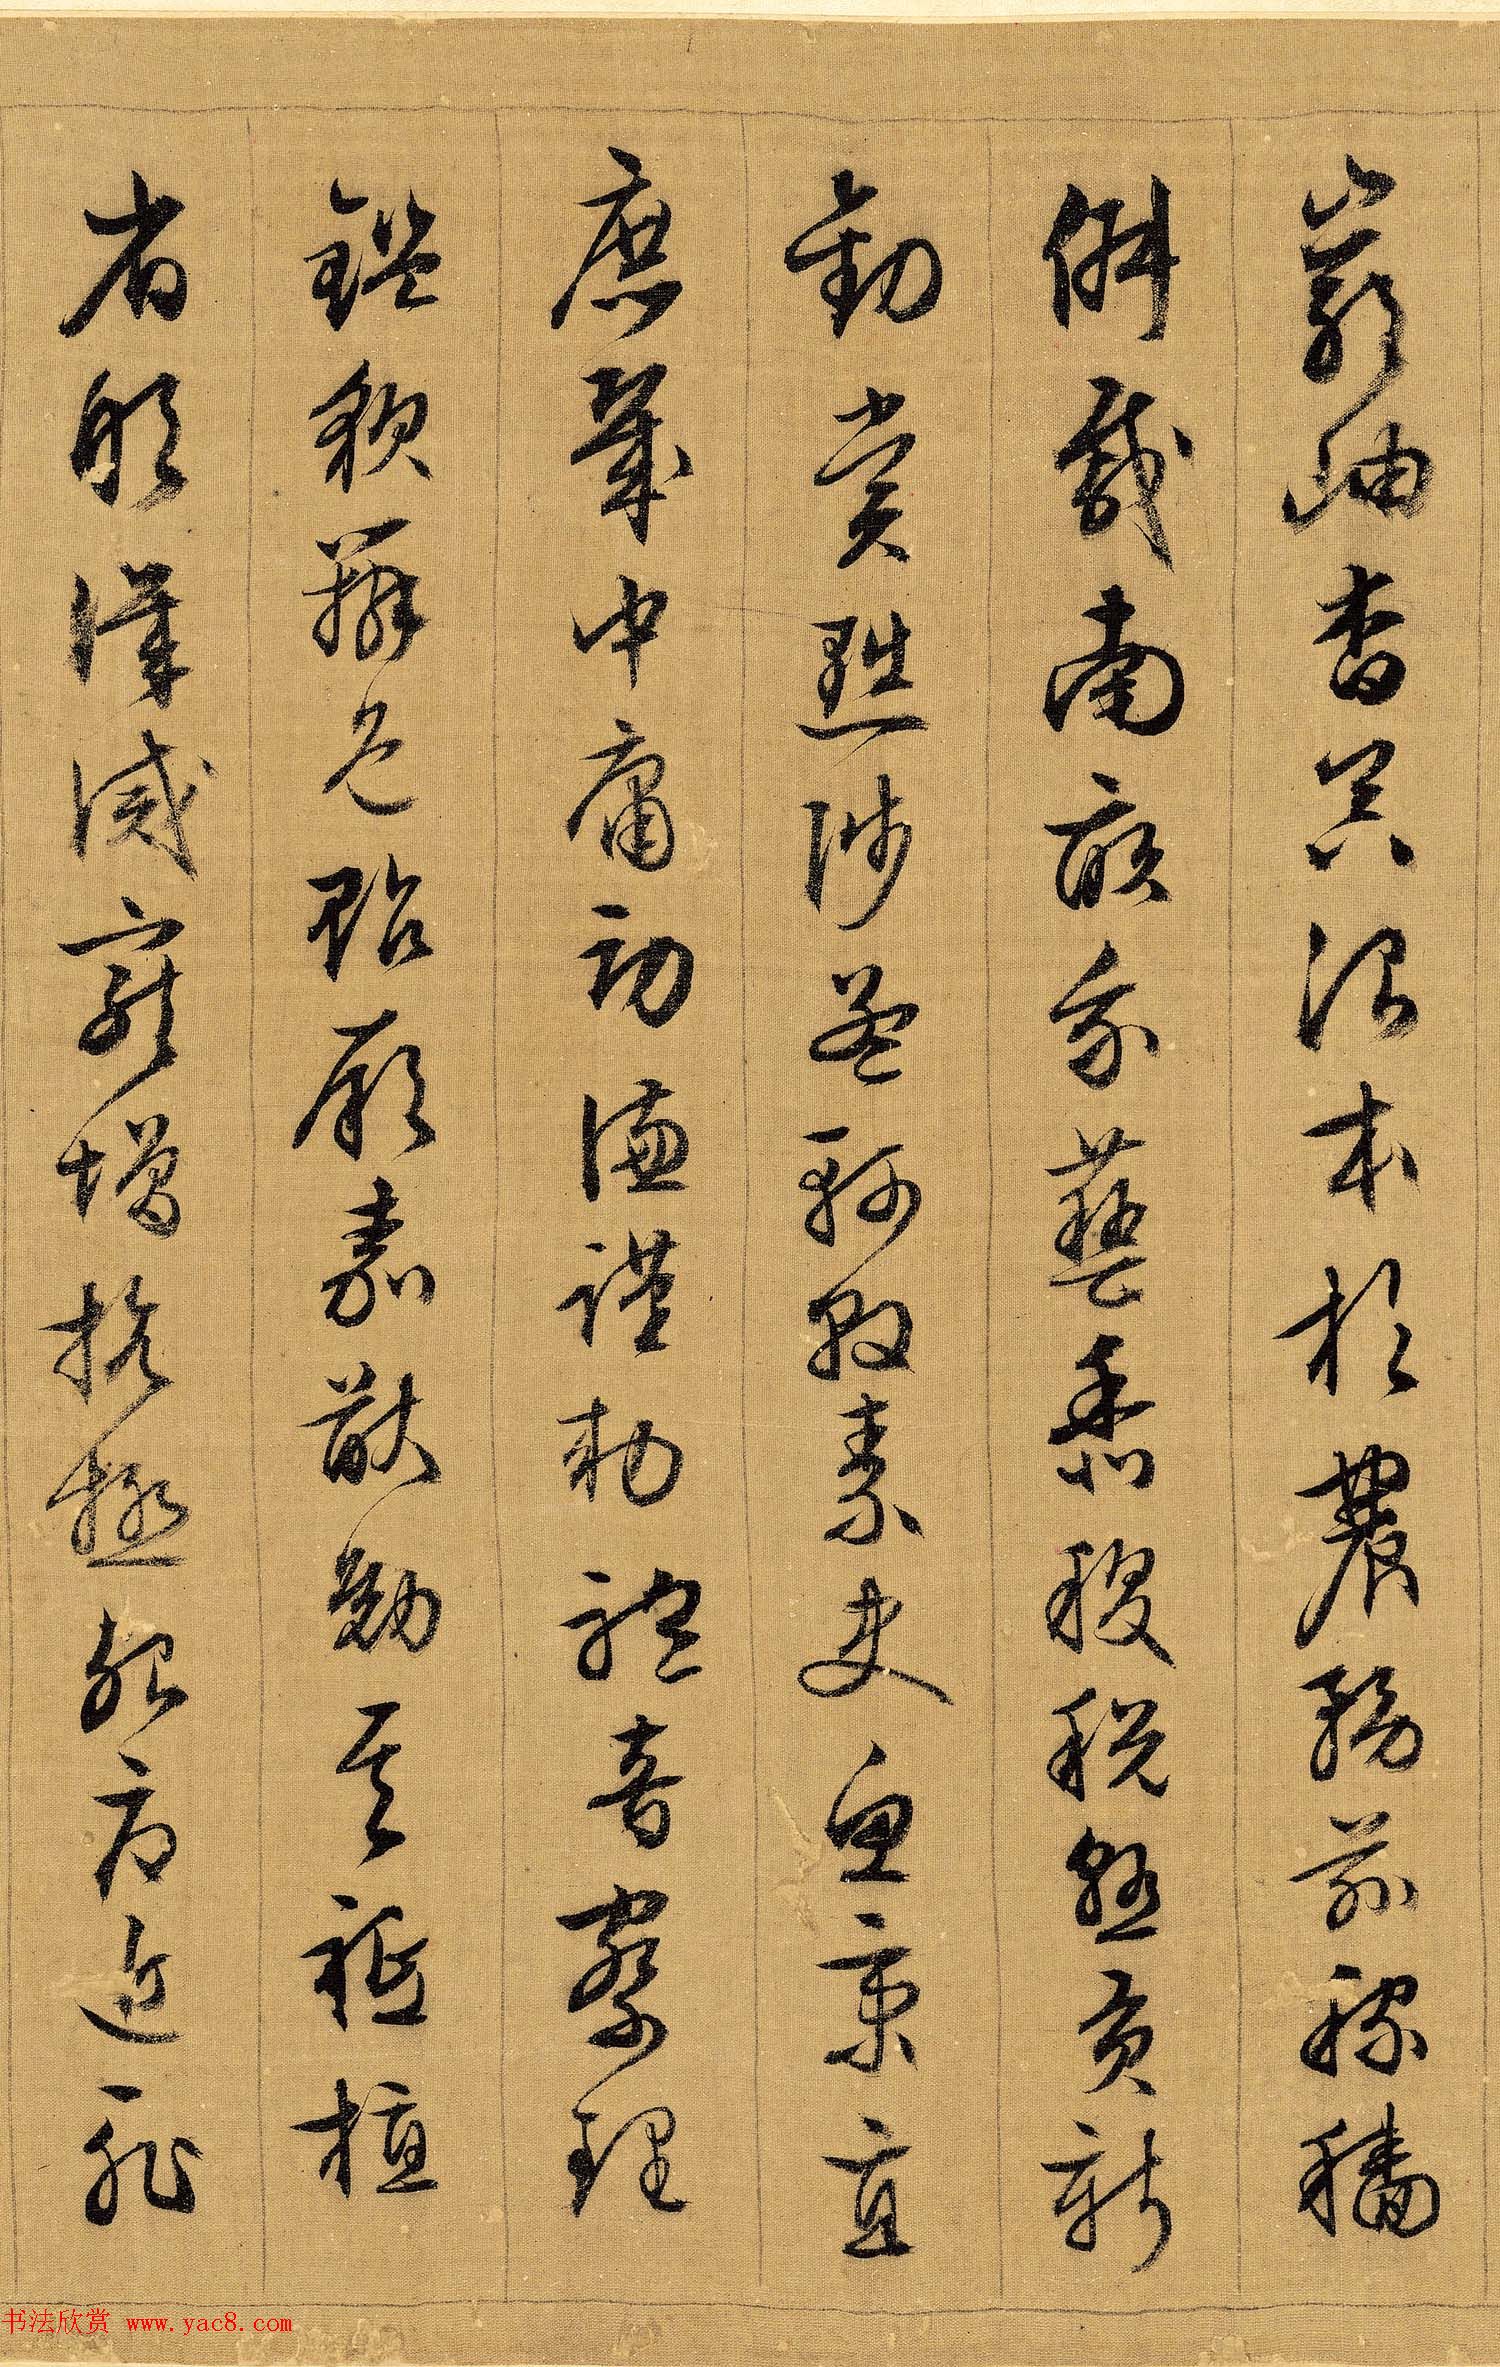 巖岫杳冥治本於農務茲稼穡
俶載南畝我藝黍稷稅熟貢新
勸賞黜陟孟軻敦素史魚秉直
庶幾中庸勞謙謹勑聆音察理
鑑貌辨色貽厥嘉猷勉其祗植
省躬譏誡寵增抗極殆辱近恥
书法欣赏 www.yac8.com